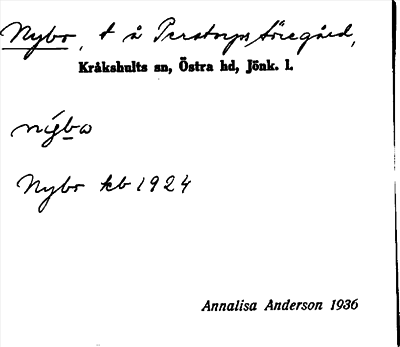 Nybo, t å Perstorps Höregård,
Kråkshults sn, Östra hd, Jönk. l.
nýbo
Nybo kb 1924
Annalisa Anderson 1936